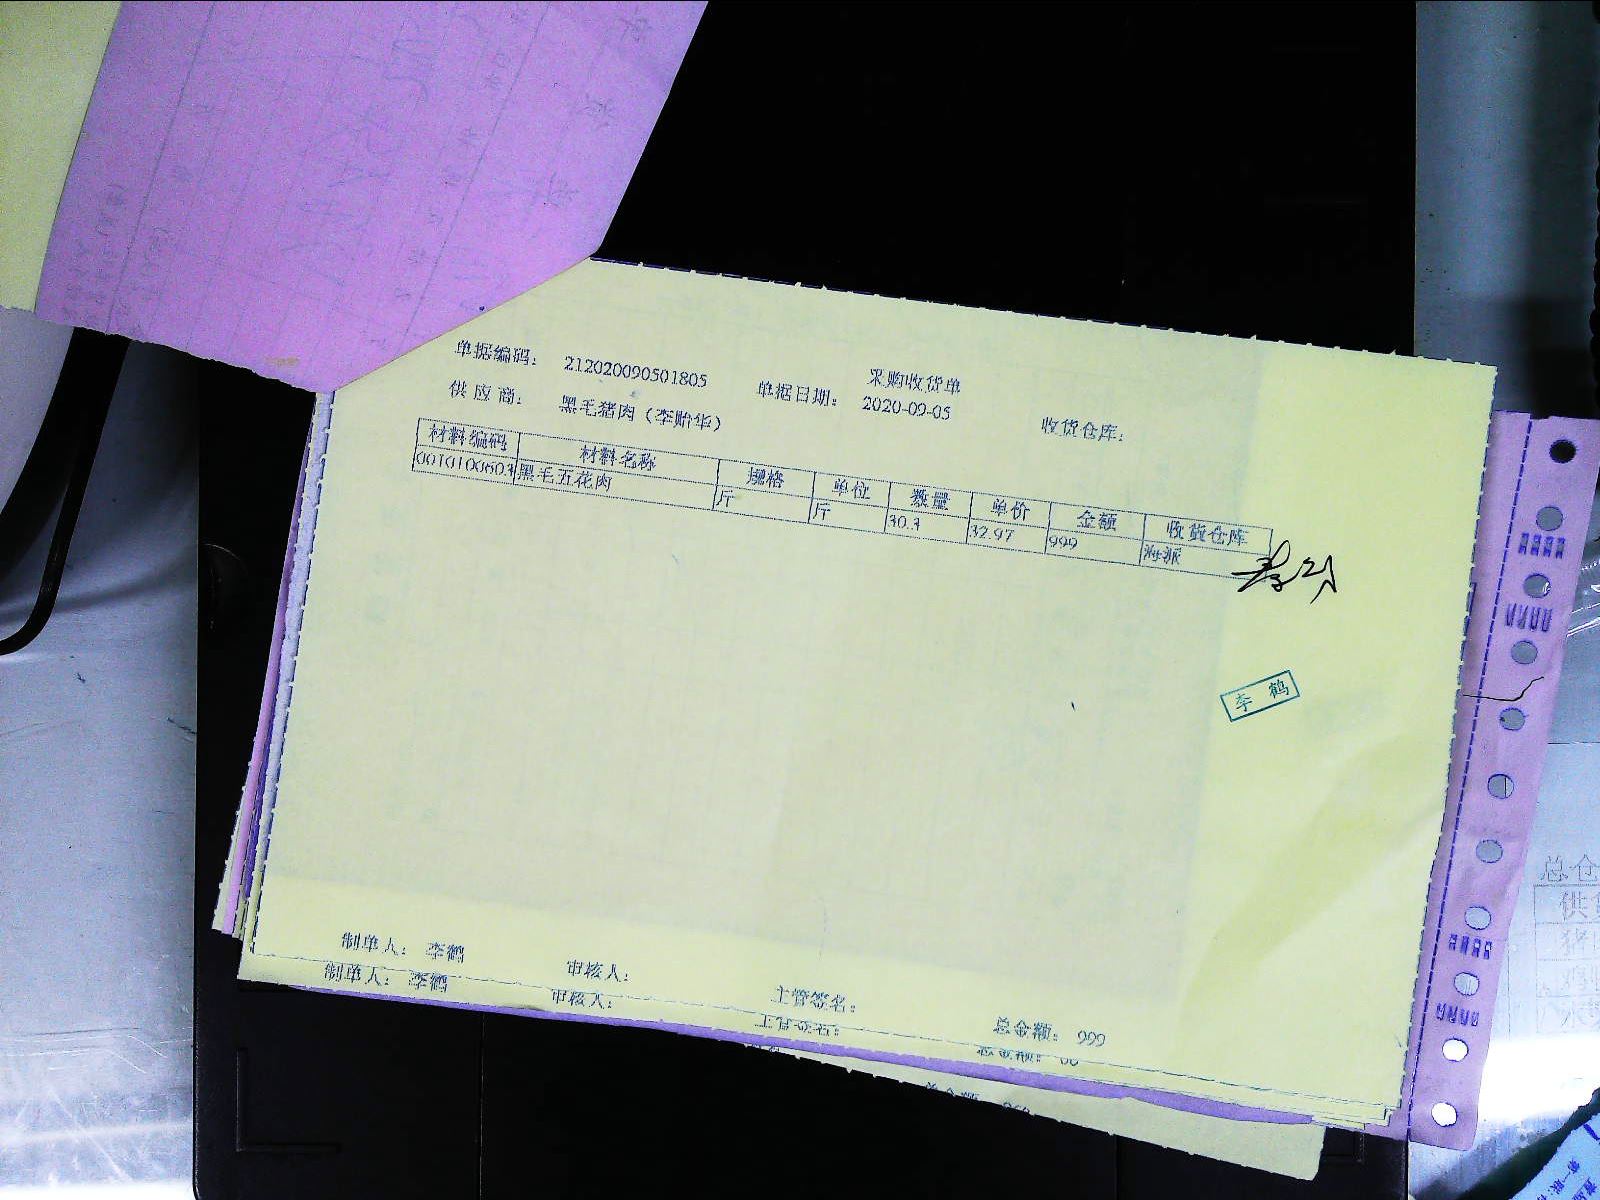 采购收货单
单据编码： 212020090501805 单据日期： 2020-09-05 收货仓库：
供应商： 黑毛猪肉（李贻华）
材料编码 材料名称 规格 单位 数量 单价 金额 收货仓库
0010100603 黑毛五花肉 斤 斤 30.3 32.97 999 海派
李鹤
制单人： 李鹤 审核人： 主管签名： 总金额： 999
制单人： 李鹤 审核人： 主管签名： 总金额：
总仓